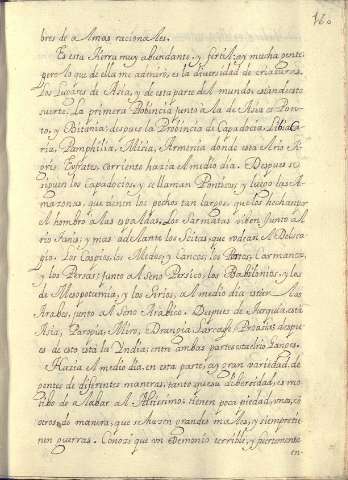 160
bres de almas racionales.
Es esta tierra muy abundante, y fertil: ay mucha gente:
pero lo que de ella me admirò, es la diversidad de criaturas.
Los lugares de Asia, y de esta parte del mundo, estàn de esta
suerte. La primera Probincia junto à la de Asia es Pon-
to, y Bitania: despues la Probincia de Capadocia,
ria, Pamphilia, Armenia donde esta el rio
Eufrates, corriente hazia el medio dia. Despues se
siguen los Capadocios, y se llaman Ponticos, y luego las A-
mazonas, que tienen los pechos tan largos, que los hechan por
el hombro à las espaldas. Los Sarmatas viben junto al
rio Tanis; y mas adelante los Scitas, que rodean el
gio. Los Caspios, los Medos, y los Partos, Carmanos,
y los Persas: junto al seno Persico, los Babilonios, y los
de Mesopotamia, y los Sirios, al medio dia estàn los
Arabes, junto al seno Arabico. Despues de
Asia, despu-
es de esto està la Yndia: entre ambas partes està el rio Ganges.
Hazia el medio dia, en esta parte, ay gran variedad de
gentes de diferentes maneras, tanto que su dibersidad, es mo-
tibo de alabar al Altissimo: tienen poca piedad, unos, cõ
otros, de manera, que se hazen grandes males, y siempre tie-
nen guerras. Conoci que un Demonio terrible, y
en-